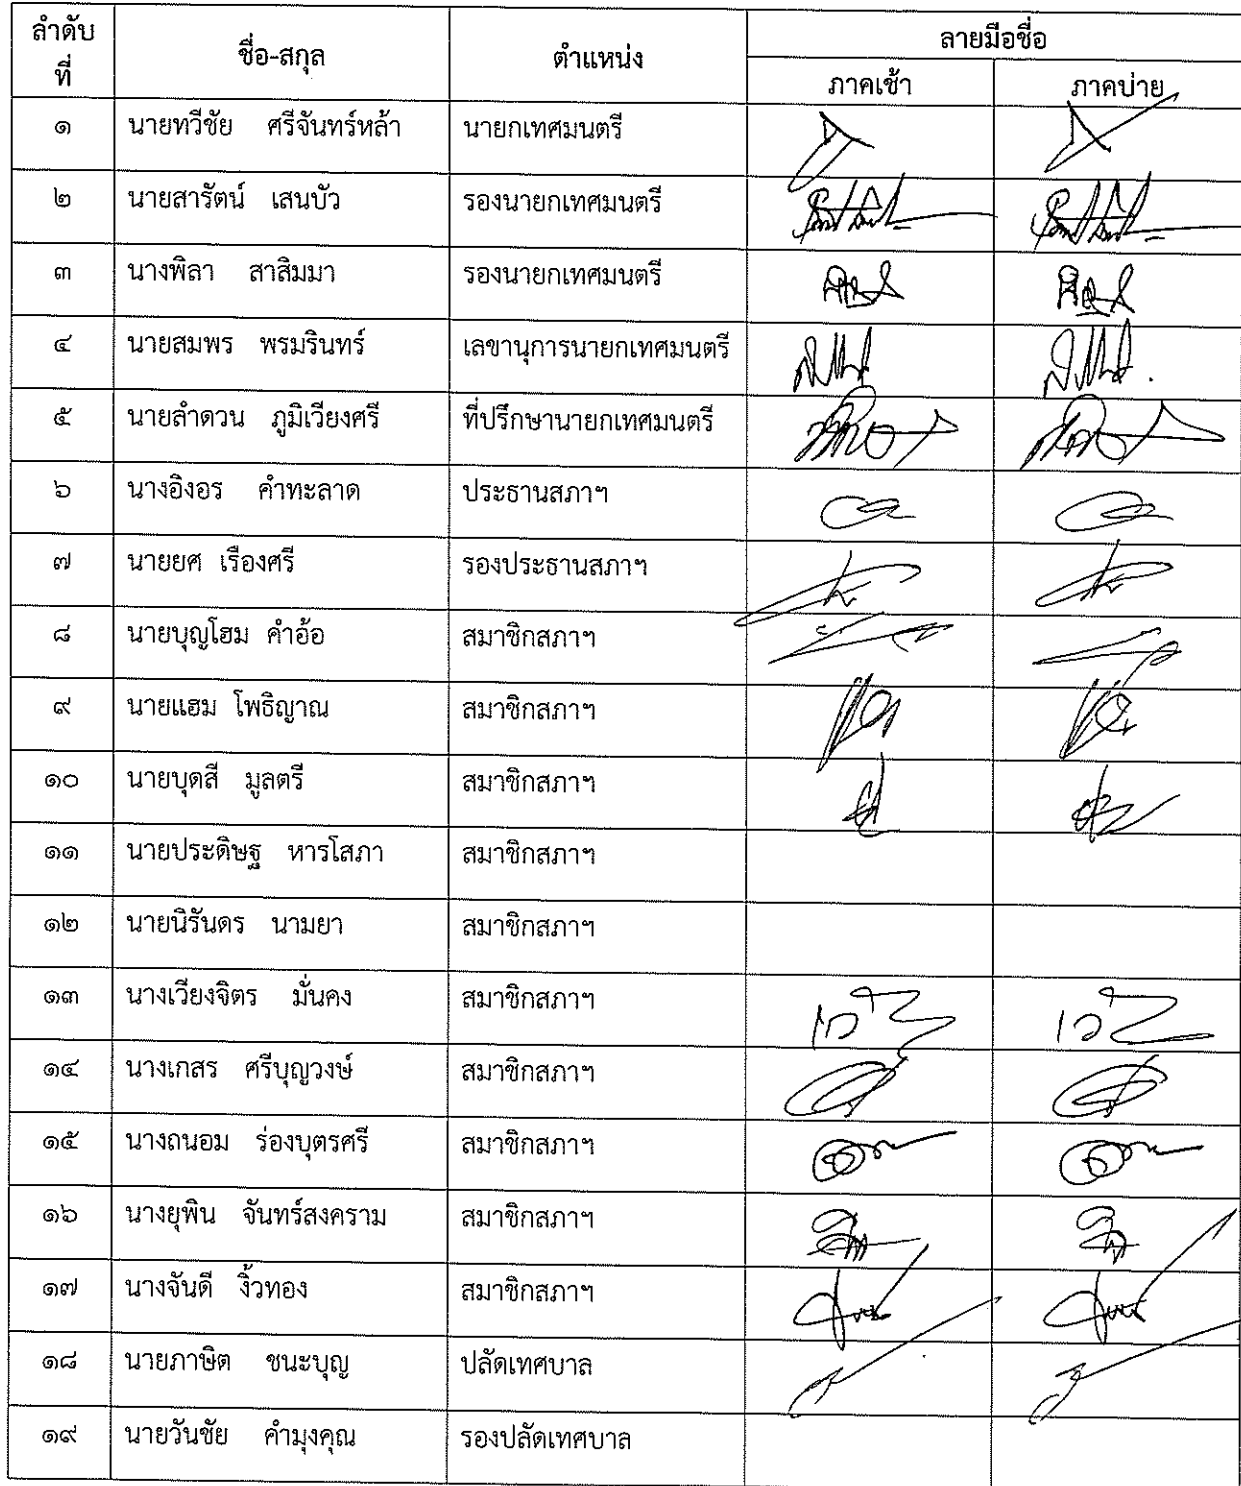 ลำดับ ที่ ชื่อ-สกุล ตำแหน่ง ลายมือชื่อ
ภาคเช้า ภาคบ่าย
๑ นายทวีชัย ศรีจันทร์หล้า นายกเทศมนตรี
๒ นายสารัตน์ เสนบัว รองนายกเทศมนตรี
๓ นางพิลา สาสิมมา รองนายกเทศมนตรี
๔ นายสมพร พรมรินทร์ เลขานุการนายกเทศมนตรี
๕ นายลำดวน ภูมิเวียงศรี ที่ปรึกษานายกเทศมนตรี
๖ นางอิงอร คำทะลาด ประธานสภาฯ
๗ นายยศ เรืองศรี รองประธานสภาฯ
๘ นายบุญโฮม คำอ้อ สมาชิกสภาฯ
๙ นายแฮม โพธิญาณ สมาชิกสภาฯ
๑๐ นายบุดสี มูลตรี สมาชิกสภาฯ
๑๑ นายประดิษฐ หารโสภา สมาชิกสภาฯ
๑๒ นายนิรันดร นามยา สมาชิกสภาฯ
๑๓ นางเวียงจิตร มั่นคง สมาชิกสภาฯ
๑๔ นางเกสร ศรีบุญวงษ์ สมาชิกสภาฯ
๑๕ นางถนอม ร่องบุตรศรี สมาชิกสภาฯ
๑๖ นางยุพิน จันทร์สงคราม สมาชิกสภาฯ
๑๗ นางจันดี งิ้วทอง สมาชิกสภาฯ
๑๘ นายภาษิต ชนะบุญ ปลัดเทศบาล
๑๙ นายวันชัย คำมุงคุณ รองปลัดเทศบาล